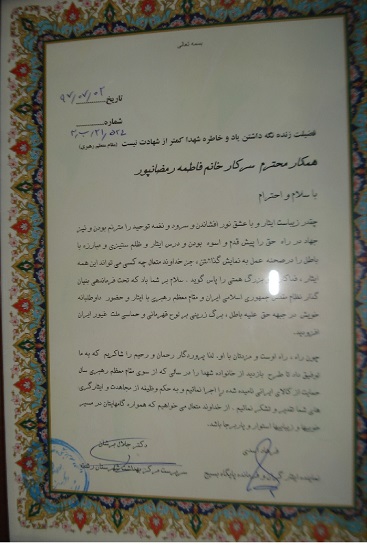 بسمه تعالی
تاریخ ۹۷/۰۷/۰۲
شماره
فضیلت زنده نگه داشتن یاد و خاطره شهدا کمتر از شهادت نیست (مقام معظم رهبری)
همکار محترم سرکار خانم فاطمه رمضانپور
با سلام و احترام
چقدر زیباست ایثار و با عشق نور افشاندن و سرود و نغمه توحید را مترنم بودن و نیز
جهاد در راه حق را پیش قدم و اسوه بودن و درس ایثار و ظلم ستیزی و مبارزه با
باطل را در صحنه عمل به نمایش گذاشتن، جز خداوند متعال چه کسی می تواند این همه
ایثار ، بزرگ هستی را پاس گوید . سلام بر شما باد که تحت فرماندهی بنیان
گذار نظام جمهوری اسلامی ایران و مقام معظم رهبری با ایثار و حضور داوطلبانه
خویش در جبهه حق علیه باطل ، برگ زرینی بر لوح قهرمانی و حماسی ملت غیور ایران
افزودید.
چون راه ، راه اوست و عزتمان با او، لذا پروردگار رحمان و رحیم را شاکریم که به ما
توفیق داد تا طرح بازدید از خانواده شهدا را در سالی که از سوی مقام معظم رهبری سال
حمایت از کالای ایرانی نامیده شده را اجرا نمائیم و به حکم وظیفه از مجاهدت و ایثارگری
های شما تقدیر و تشکر نمائیم . از خداوند متعال می خواهیم که همواره گامهایتان در مسیر
خوبیها و زیباییها استوار و پابرجا باشد.
دکتر جلال
سرپرست مرکز بهداشت شهرستان رشت
نماینده ایثارگران و فرمانده پایگاه بسیج